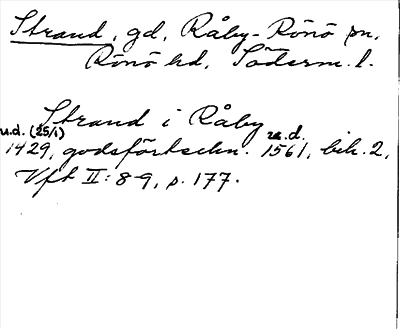 Strand, gd, Råby-Rönö sn,
Rönö hd, Söderm. l.
Strand i Råby
u.d. (25/1) u.d.
1429, godsförteckn. 1561, bih. 2,
Vft II: 8-9, p. 177.